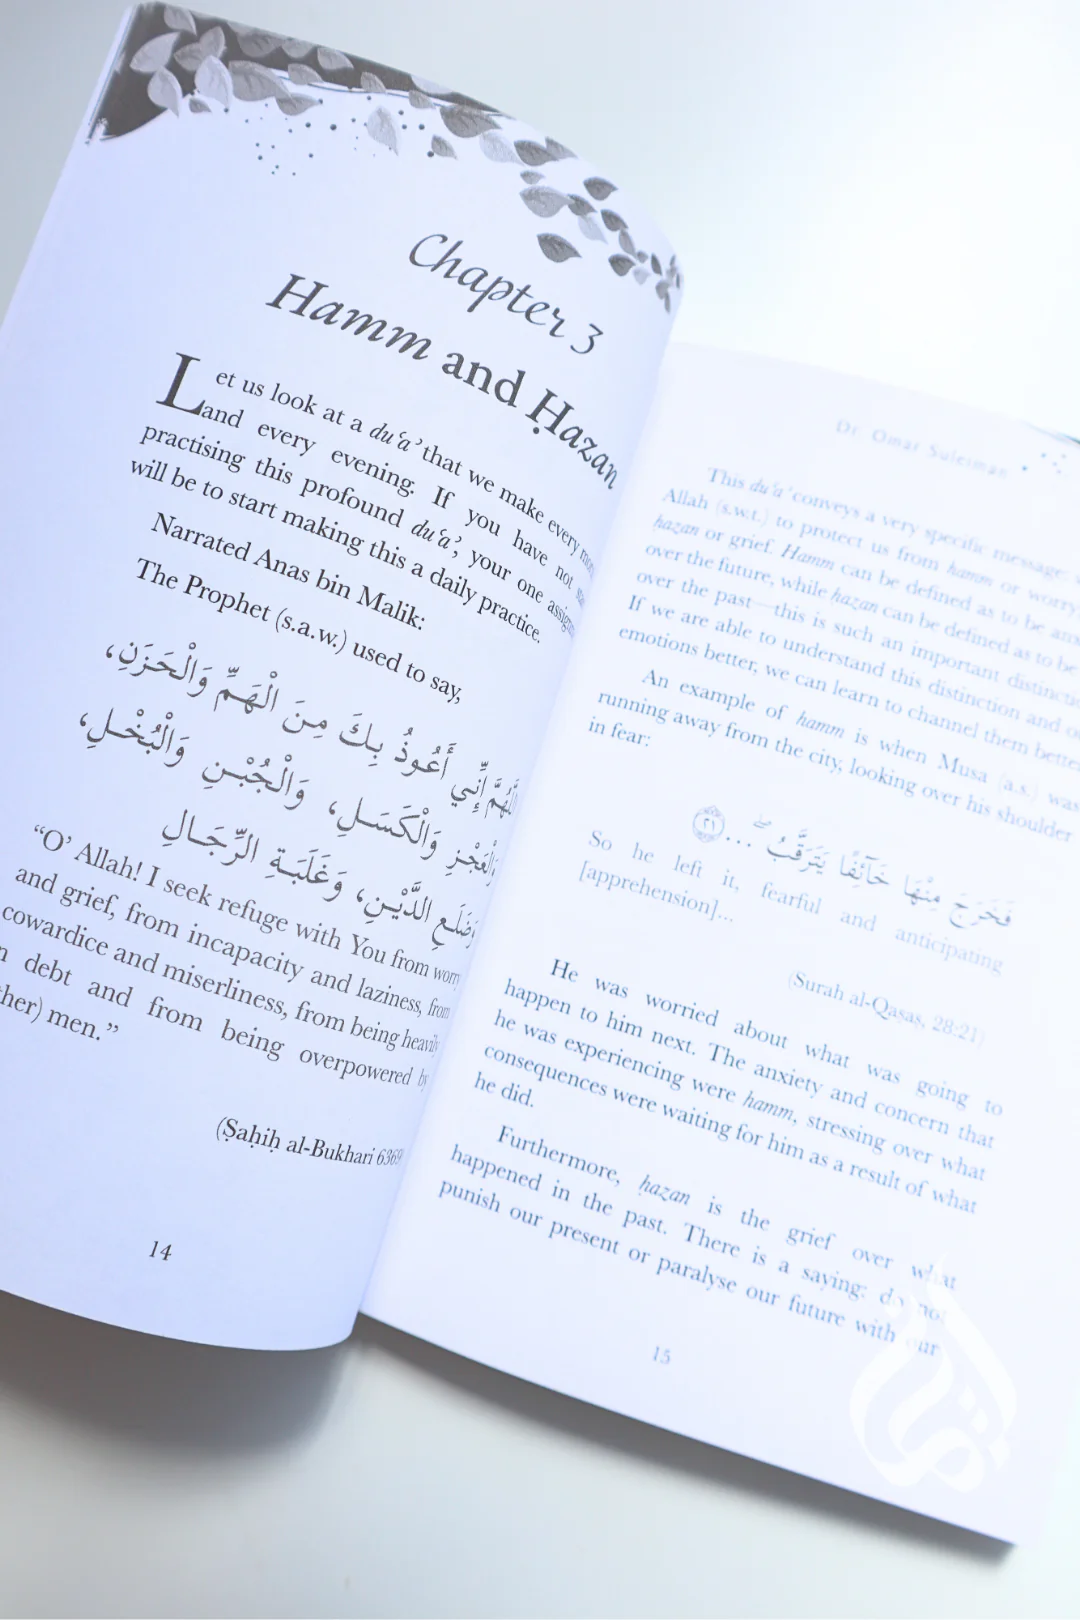 Chapter 3
Hamm and Ḥazan
Let us look at a du‘a’ that we make every
and every evening. If you have not
practising this profound du‘a’, your one
will be to start making this a daily practice.
Narrated Anas bin Malik:
The Prophet (s.a.w.) used to say,
اللَّهُمَّ إِنِّي أَعُوذُ بِكَ مِنَ الْهَمِّ وَالْحَزَنِ،
وَالْعَجْزِ وَالْكَسَلِ، وَالْجُبْنِ وَالْبُخْلِ،
وَضَلَعِ الدَّيْنِ، وَغَلَبَةِ الرِّجَالِ
“O’ Allah! I seek refuge with You from worry
and grief, from incapacity and laziness, from
cowardice and miserliness, from being heavily
debt and from being overpowered by
men.”
(Ṣaḥiḥ al-Bukhari 6369
14
Dr. Omar Suleiman
This du‘a’ conveys a very specific message:
Allah (s.w.t.) to protect us from hamm or worry
ḥazan or grief. Hamm can be defined as to be
over the future, while ḥazan can be defined as to be
over the past—this is such an important
If we are able to understand this distinction and
emotions better, we can learn to channel them
An example of hamm is when Musa (a.s.) was
running away from the city, looking over his shoulder
in fear:
فَخَرَجَ مِنْهَا خَآئِفًا يَتَرَقَّبُ ۖ ... ٢١
So he left it, fearful and anticipating
[apprehension]...
(Surah al-Qasas, 28:21)
He was worried about what was going to
happen to him next. The anxiety and concern that
he was experiencing were hamm, stressing over what
consequences were waiting for him as a result of what
he did.
Furthermore, ḥazan is the grief over what
happened in the past. There is a saying: do not
punish our present or paralyse our future with our
15